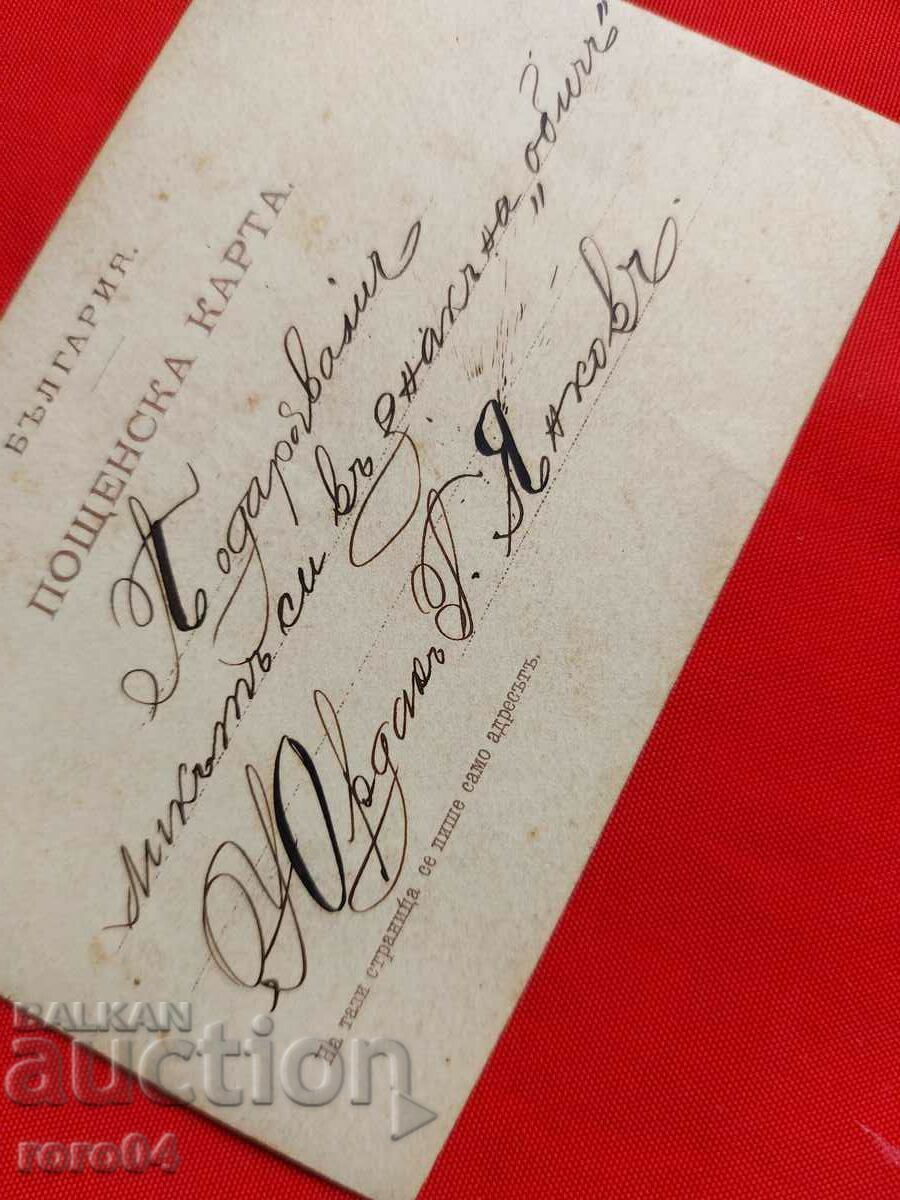 БЪЛГАРИЯ.
ПОЩЕНСКА КАРТА.
Подарявамъ
ликътъ си въ знакъ на „обичъ“
Йорданъ Г. Янковъ.
На тази страница се пише само адресътъ.
BALKAN
auction
roro04